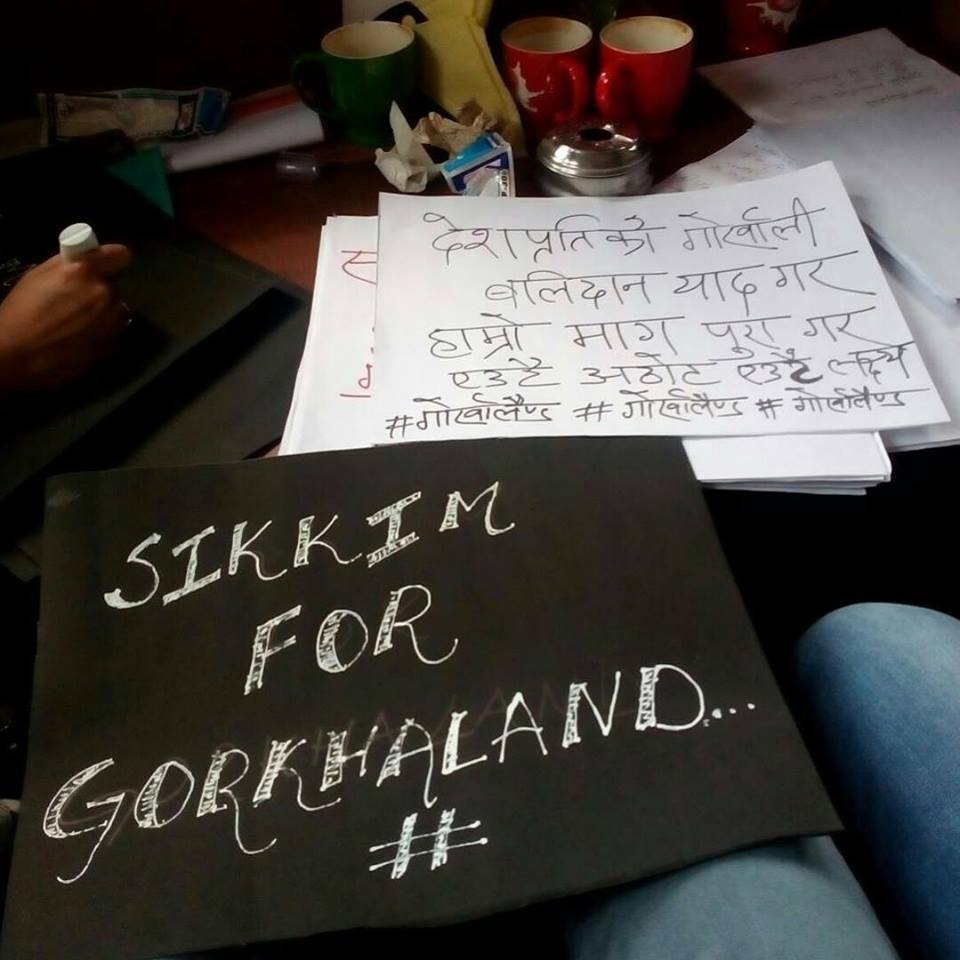 देशप्रतिको गोर्खाली
बलिदान याद गर
हाम्रो माग पुरा गर
एउटै अठोट एउटै लक्ष्य
#गोर्खालैण्ड #गोर्खालैण्ड #गोर्खालैण्ड
SIKKIM
FOR
GORKHALAND...
#